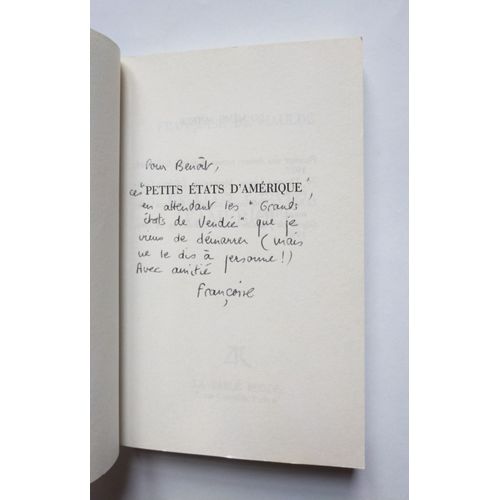 Pour Benoît,
ces "PETITS ÉTATS D'AMÉRIQUE",
en attendant les "Grands
états de Vendée" que je
viens de démarrer (mais
ne le dis à personne!)
Avec amitié
Françoise